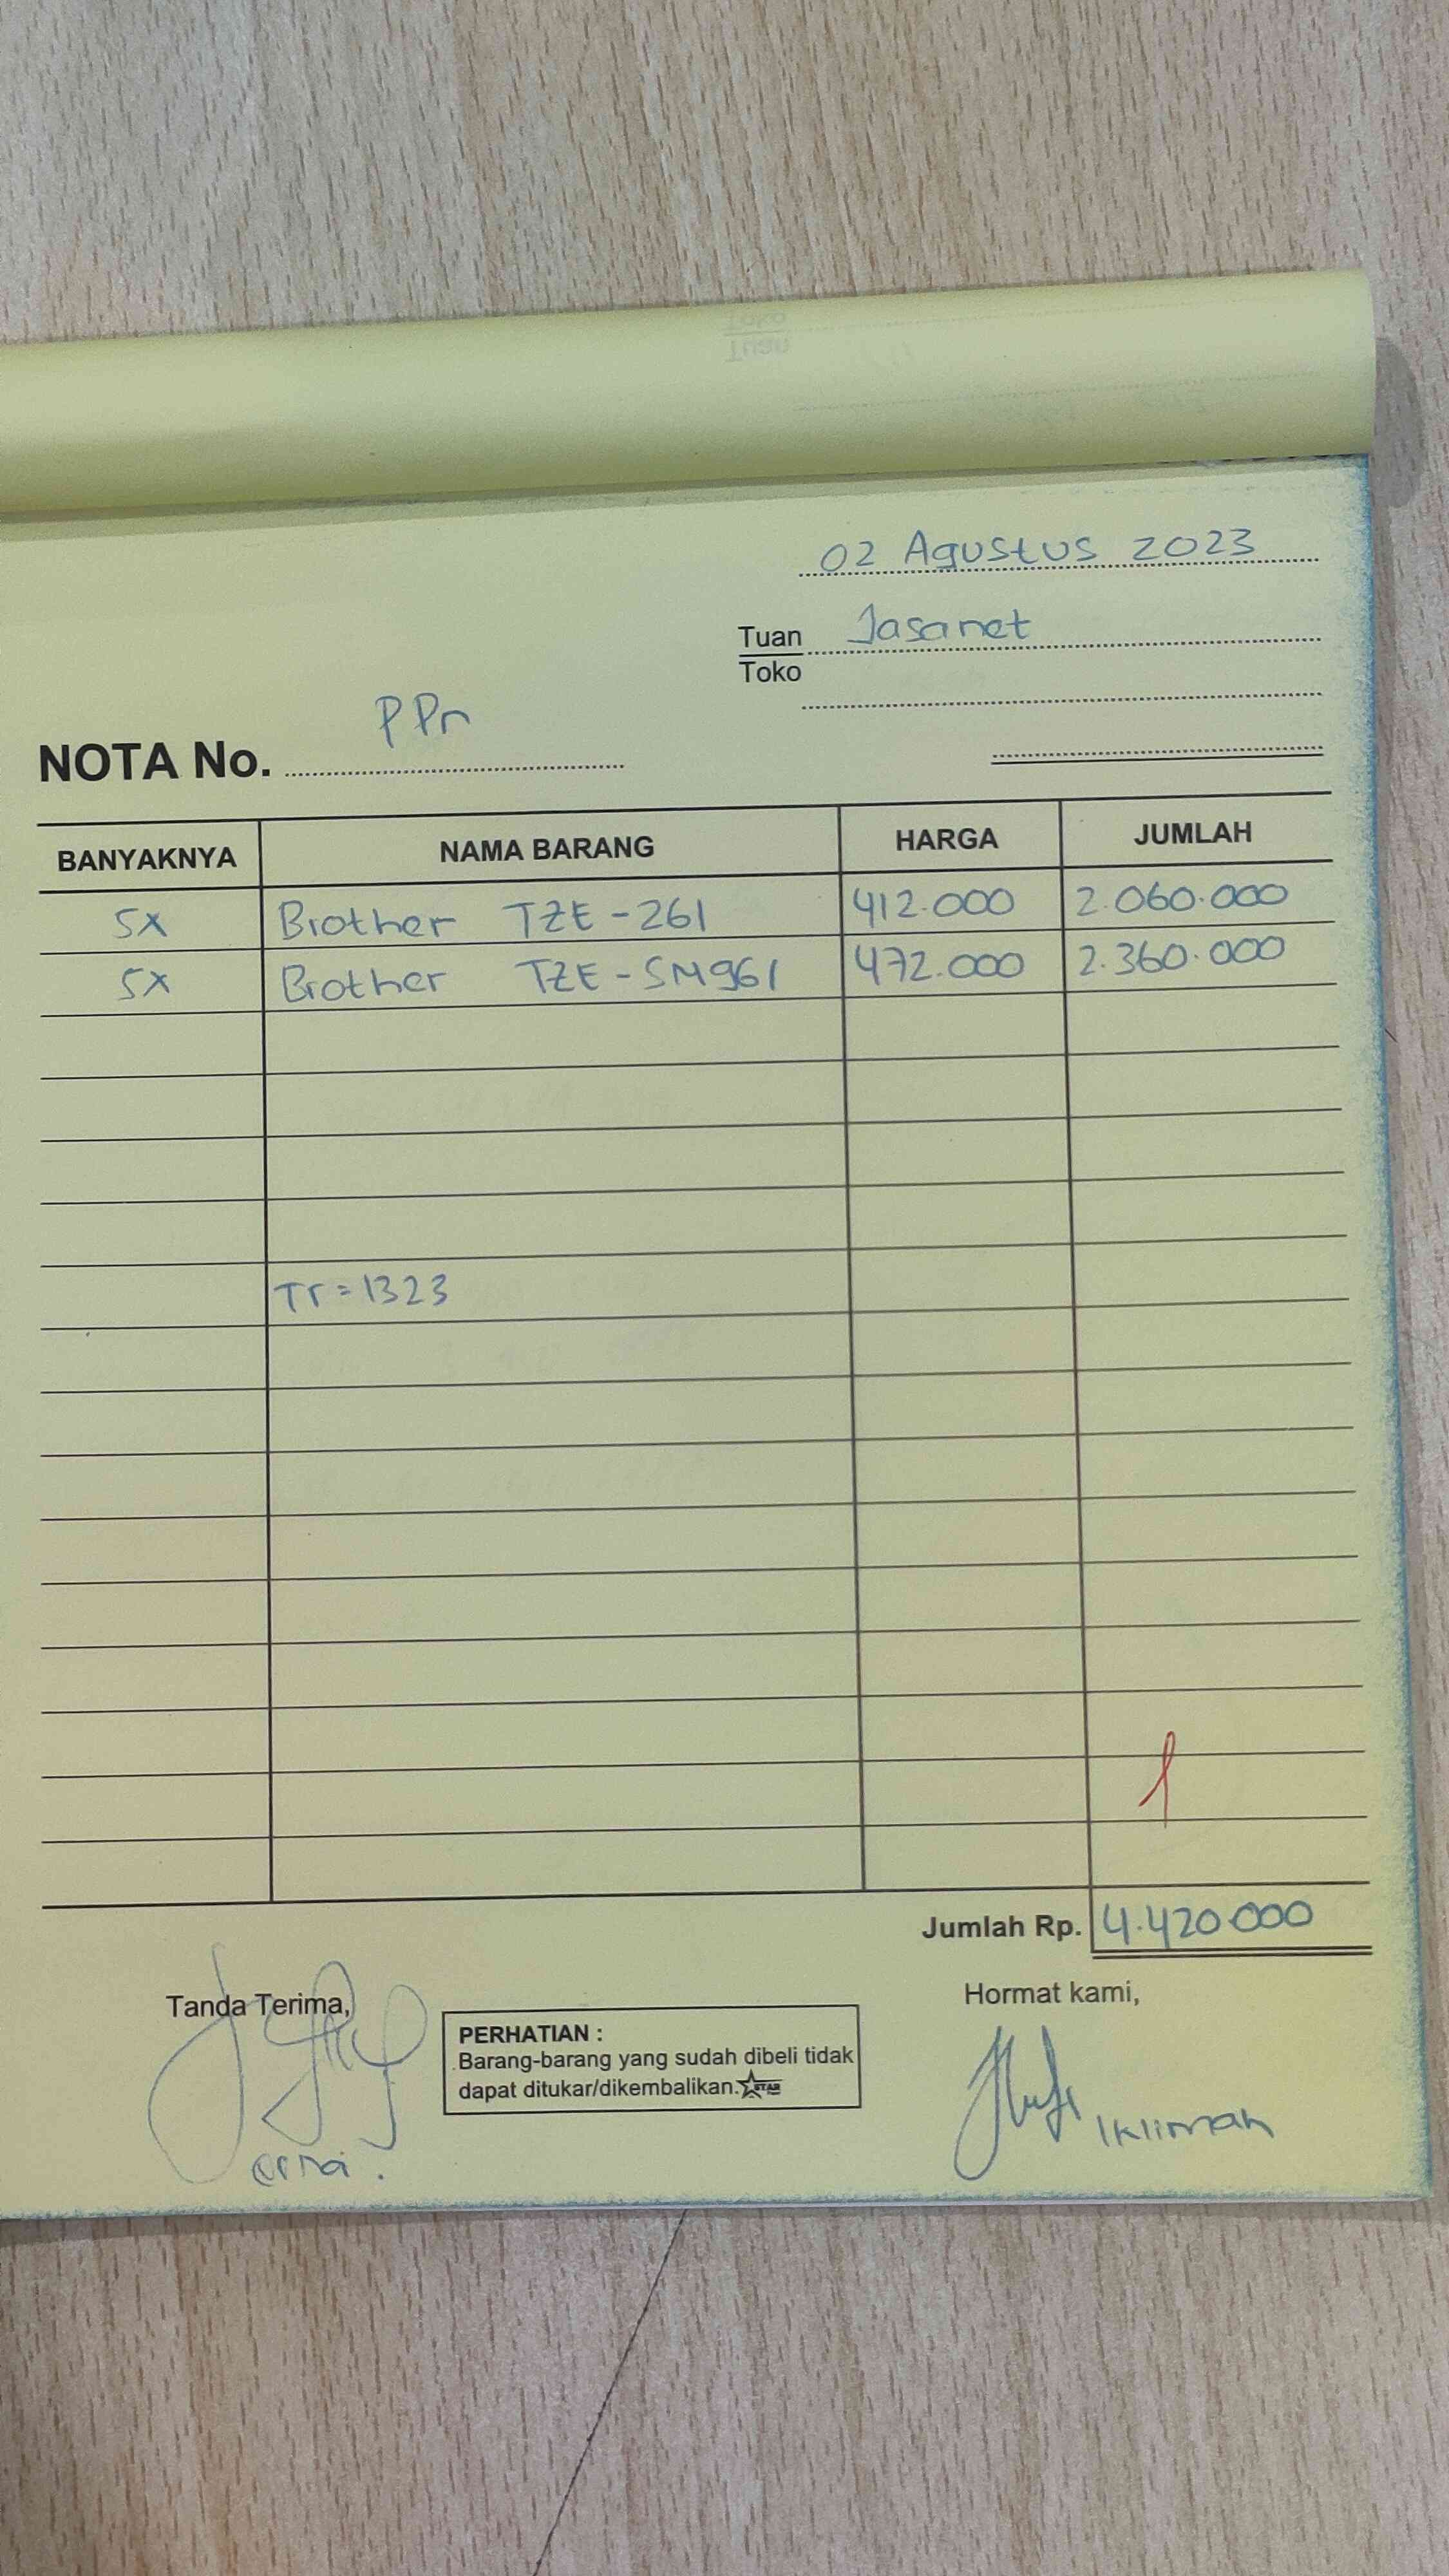 02 Agustus 2023
Tuan Jasanet
Toko
PPn
NOTA No.
BANYAKNYA NAMA BARANG HARGA JUMLAH
5x Brother TZE-261 412.000 2.060.000
5x Brother TZE-SM961 472.000 2.360.000
Tr=1323
Jumlah Rp. 4.420.000
Tanda Terima, Hormat kami,
PERHATIAN :
Barang-barang yang sudah dibeli tidak
dapat ditukar/dikembalikan. STAR
Iklimah
erna.